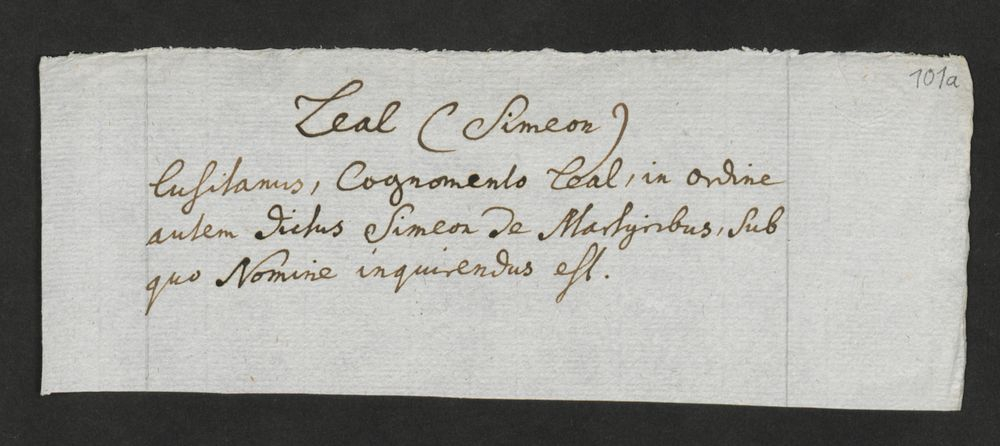 101a
Leal (Simeon)
Lusitanus, Cognomento Leal, in ordine
autem dictus Simeon de Martyribus, sub
quo Nomine inquirendus est.